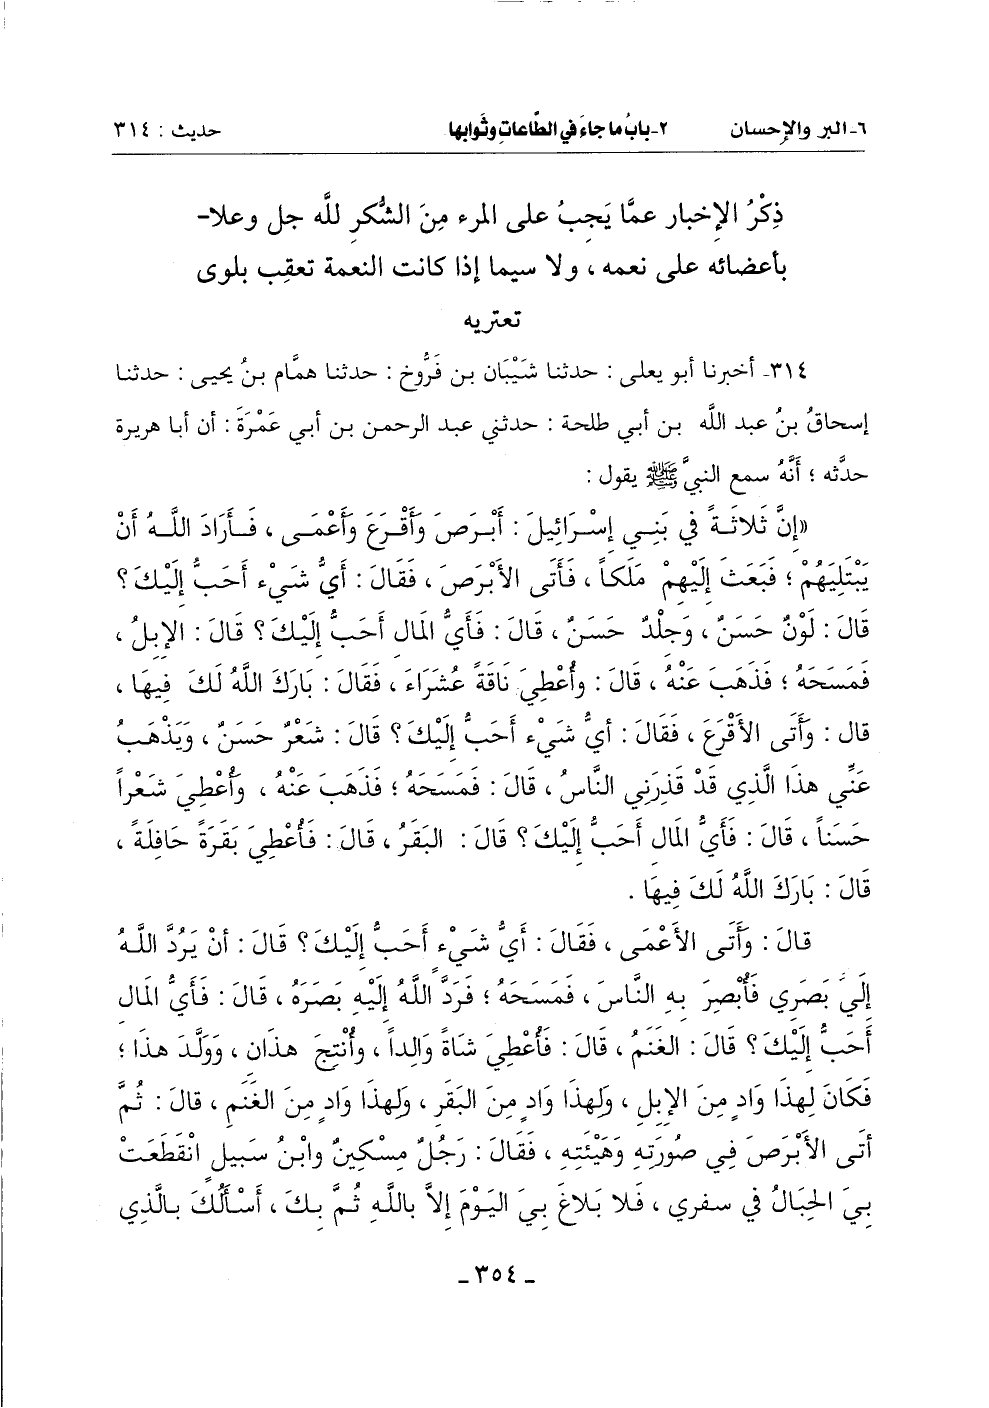 ٦- البر والإحسان ٢- بابُ ما جاءَ في الطَّاعاتِ وثَوابها حديث : ٣١٤
ذِكْرُ الإخبار عمَّا يَجبُ على المرء مِنَ الشُّكرِ للَّه جل وعلا-
بأعضائه على نعمه ، ولا سيما إذا كانت النعمة تعقِب بلوى
تعتريه
٣١٤- أخبرنا أبو يعلى : حدثنا شَيْبَان بن فَرُّوخ : حدثنا همَّام بنُ يحيى : حدثنا
إسحاقُ بنُ عبد اللَّه بن أبي طلحة : حدثني عبد الرحمن بن أبي عَمْرَةَ : أن أبا هريرة
حدَّثه ؛ أَنَّهُ سمع النبيَّ ﷺ يقول :
«إنَّ ثَلاثَـةً في بَنِـي إسْـرَائِيلَ : أَبْـرَصَ وَأَقْـرَعَ وَأَعْمَـى ، فَـأَرَادَ اللَّـهُ أَنْ
يَبْتَلِيَهُمْ ؛ فَبَعَثَ إِلَيْهِمْ مَلَكاً ، فَأَتَى الأَبْرَصَ ، فَقَالَ : أَيُّ شَيْء أَحَبُّ إِلَيْكَ ؟
قَالَ : لَوْنٌ حَسَنٌ ، وَجِلْدٌ حَسَنٌ ، قَالَ : فَأَيُّ المَالِ أَحَبُّ إِلَيْكَ ؟ قَالَ : الإبلُ ،
فَمَسَحَهُ ؛ فَذَهَبَ عَنْهُ ، قَالَ : وأُعْطِيَ نَاقَةً عُشَرَاءَ ، فَقَالَ : بَارَكَ اللَّهُ لَكَ فِيهَا ،
قال : وَأَتَى الأَقْرَعَ ، فَقَالَ : أيُّ شَيْء أَحَبُّ إِلَيْكَ ؟ قَالَ : شَعْرٌ حَسَنٌ ، وَيَذْهَبُ
عَنِّي هذَا الَّذِي قَدْ قَذِرَنِي النَّاسُ ، قَالَ : فَمَسَحَهُ ؛ فَذَهَبَ عَنْهُ ، وَأُعْطِيَ شَعْراً
حَسَناً ، قَالَ : فَأَيُّ المَالِ أَحَبُّ إِلَيْكَ ؟ قَالَ : البَقَرُ ، قَالَ : فَأُعْطِيَ بَقَرَةً حَافِلَةً ،
قَالَ : بَارَكَ اللَّهُ لَكَ فِيهَا .
قالَ : وَأَتَى الأَعْمَى ، فَقَالَ : أَيُّ شَيْء أَحَبُّ إِلَيْكَ ؟ قَالَ : أنْ يَرُدَّ اللَّهُ
إلَيَّ بَصَرِي فَأُبْصِرَ بِهِ النَّاسَ ، فَمَسَحَهُ ؛ فَرَدَّ اللَّهُ إِلَيْهِ بَصَرَهُ ، قَالَ : فَأَيُّ المَالِ
أَحَبُّ إِلَيْكَ ؟ قَالَ : الغَنَمُ ، قَالَ : فَأُعْطِيَ شَاةً وَالِداً ، وأُنْتِجَ هذَانِ ، وَوَلَّدَ هذَا ؛
فَكَانَ لِهذَا وَادٍ مِنَ الإبِلِ ، وَلِهذَا وَادٍ مِنَ البَقَرِ ، وَلِهذَا وَادٍ مِنَ الغَنَمِ ، قَالَ : ثُمَّ
أتَى الأَبْرَصَ فِي صُورَتِهِ وَهَيْئَتِهِ ، فَقَالَ : رَجُلٌ مِسْكِينٌ وابْنُ سَبيلٍ انْقَطَعَتْ
بيَ الحِبَالُ في سفري ، فَلا بَلاغَ بِيَ اليَوْمَ إلاَّ باللَّهِ ثُمَّ بكَ ، أَسْأَلُكَ بالَّذِي
- ٣٥٤ -